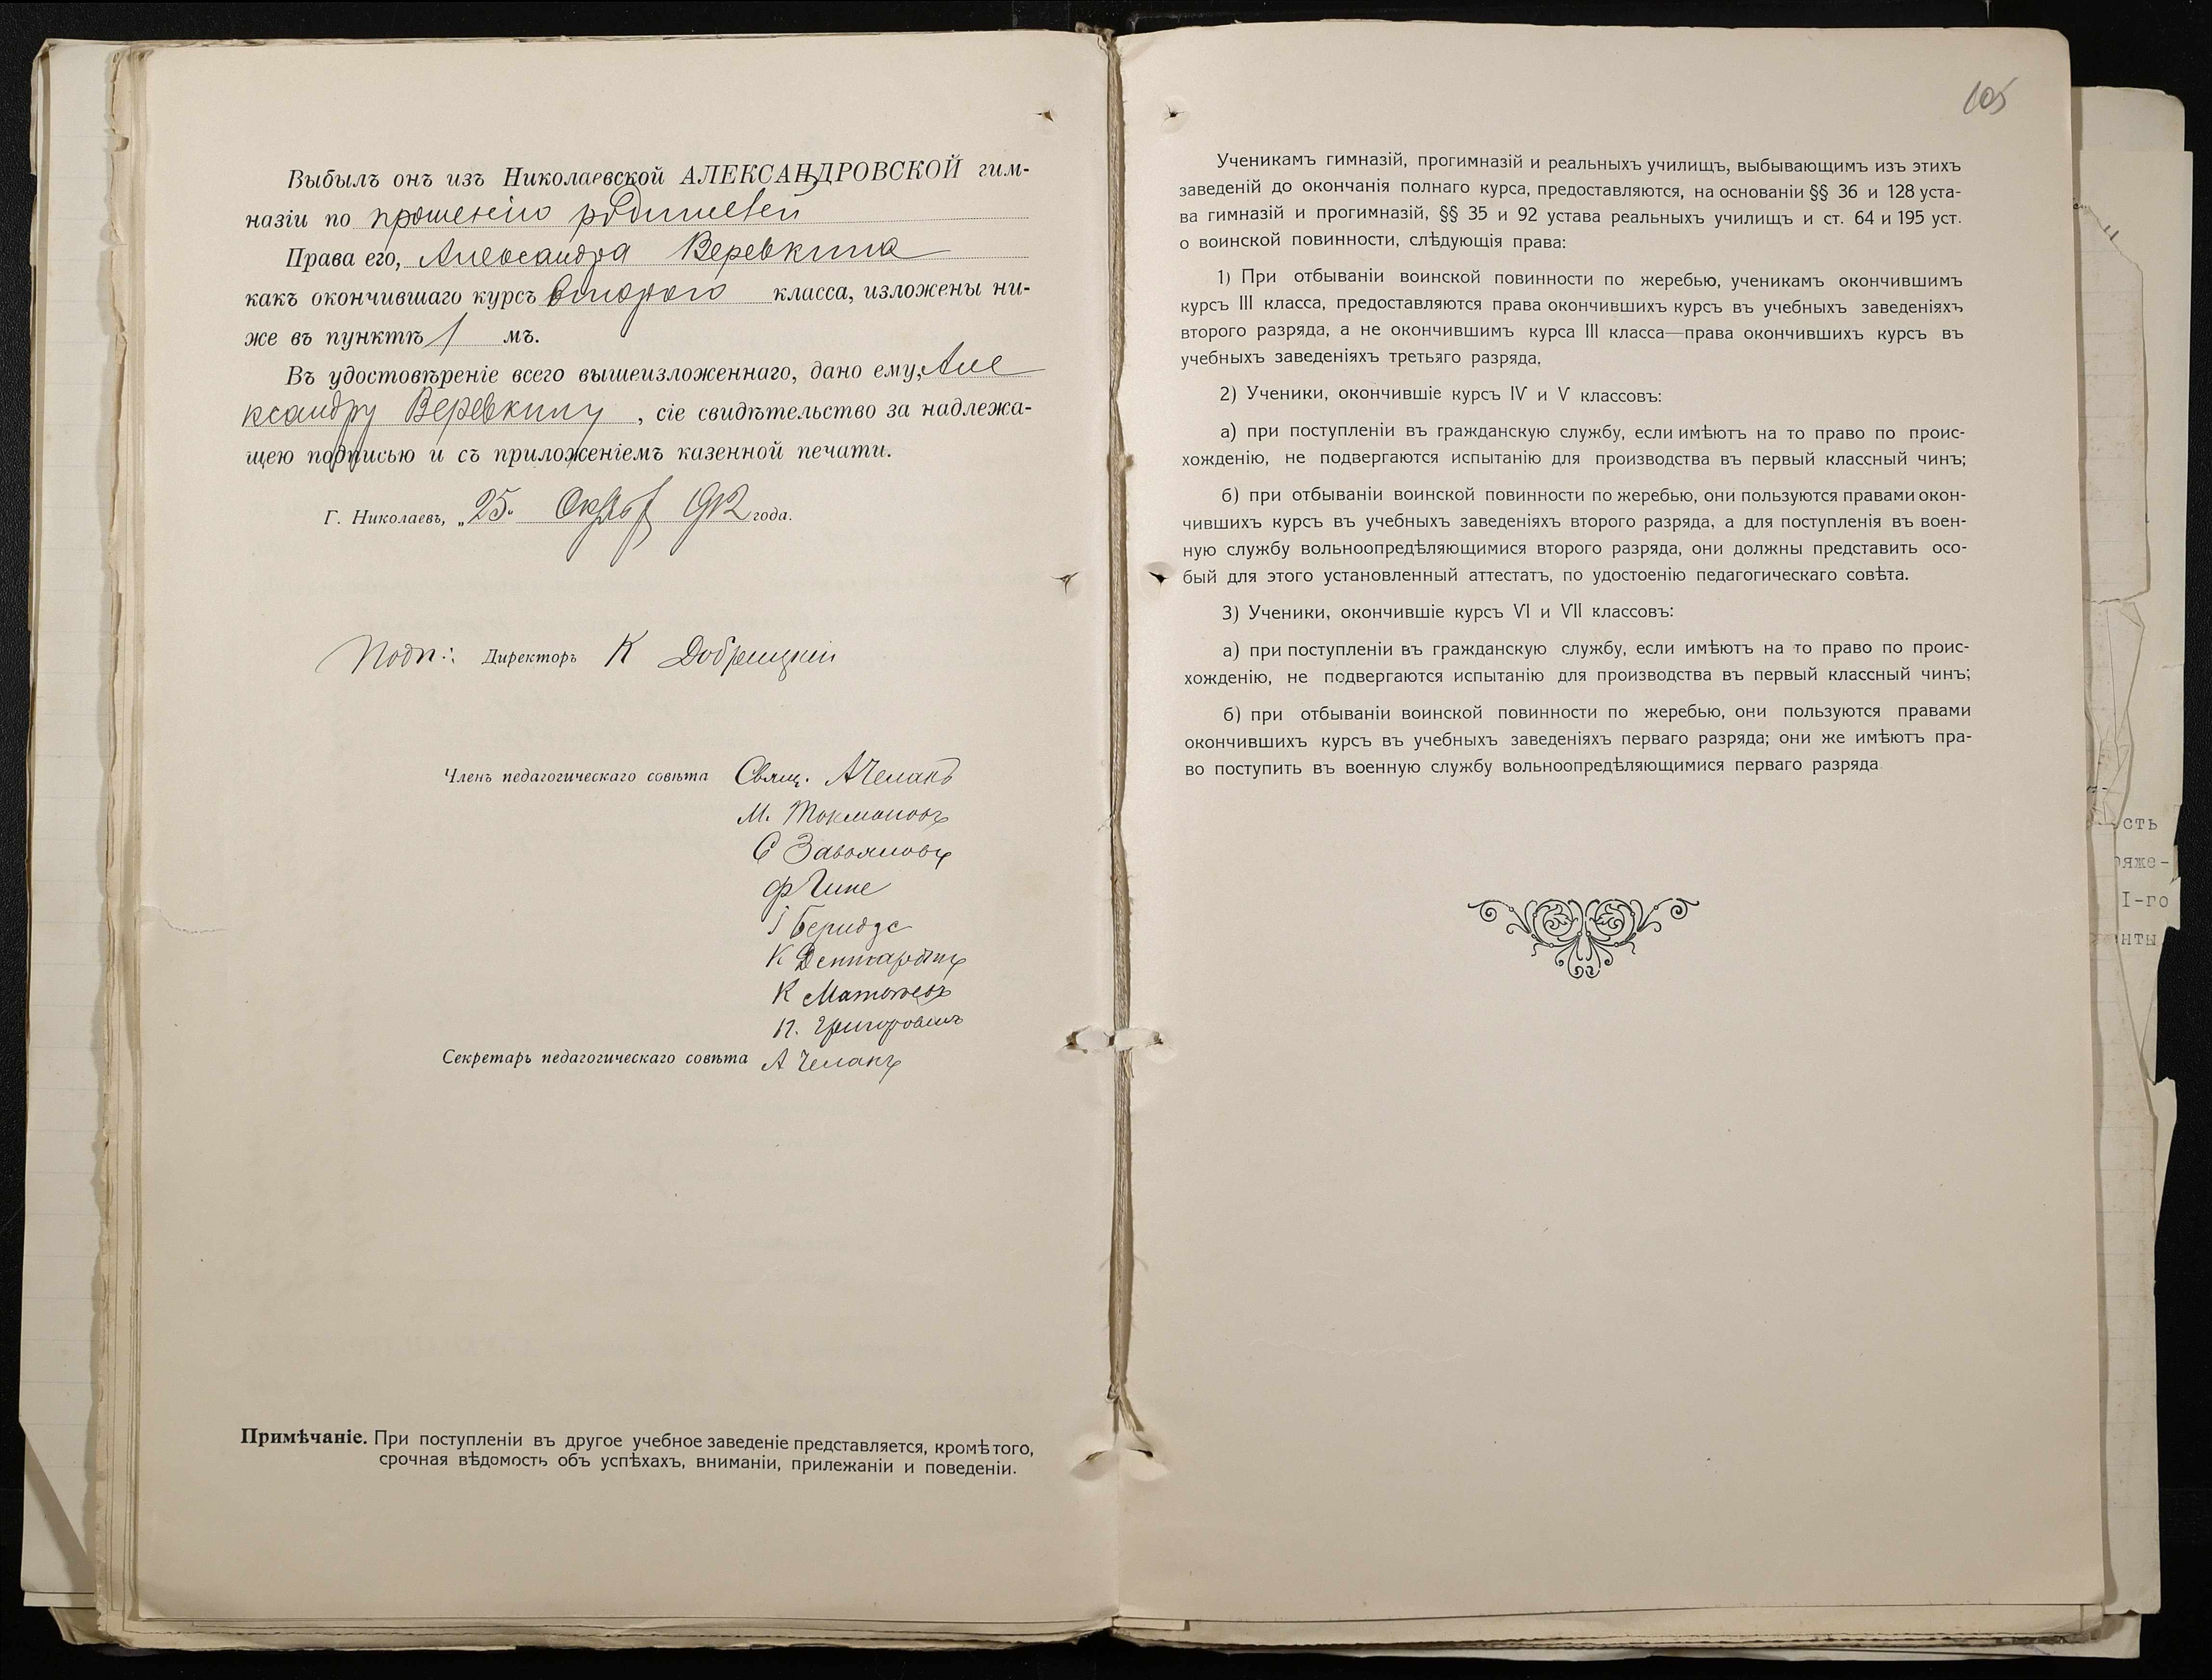 Выбылъ онъ изъ Николаевской АЛЕКСАНДРОВСКОЙ гим-
назіи по прошенію родителей
Права его, Александра Веревкина
какъ окончившаго курсъ второго класса, изложены ни-
же въ пунктѣ 1 мъ.
Въ удостовѣреніе всего вышеизложеннаго, дано ему, Але
ксандру Веревкину, сіе свидѣтельство за надлежа-
щею подписью и съ приложеніемъ казенной печати.
Г. Николаевъ, „25" 1912 года.
Подп.: Директоръ К
Членъ педагогическаго совѣта Свящ. А Челакъ
М. Токмаковъ
С Завьяловъ
Ф Гине
І Беридзе
К
К Матвѣевъ
П. Григоровичъ
Секретарь педагогическаго совѣта А Челакъ
Примѣчаніе. При поступленіи въ другое учебное заведеніе представляется, кромѣ того,
срочная вѣдомость объ успѣхахъ, вниманіи, прилежаніи и поведеніи.
105
Ученикамъ гимназій, прогимназій и реальныхъ училищъ, выбывающимъ изъ этихъ
заведеній до окончанія полнаго курса, предоставляются, на основаніи §§ 36 и 128 уста-
ва гимназій и прогимназій, §§ 35 и 92 устава реальныхъ училищъ и ст. 64 и 195 уст.
о воинской повинности, слѣдующія права:
1) При отбываніи воинской повинности по жеребью, ученикамъ окончившимъ
курсъ III класса, предоставляются права окончившихъ курсъ въ учебныхъ заведеніяхъ
второго разряда, а не окончившимъ курса III класса—права окончившихъ курсъ въ
учебныхъ заведеніяхъ третьяго разряда.
2) Ученики, окончившіе курсъ IV и V классовъ:
а) при поступленіи въ гражданскую службу, если имѣютъ на то право по проис-
хожденію, не подвергаются испытанію для производства въ первый классный чинъ;
б) при отбываніи воинской повинности по жеребью, они пользуются правами окон-
чившихъ курсъ въ учебныхъ заведеніяхъ второго разряда, а для поступленія въ воен-
ную службу вольноопредѣляющимися второго разряда, они должны представить осо-
бый для этого установленный аттестатъ, по удостоенію педагогическаго совѣта.
3) Ученики, окончившіе курсъ VI и VII классовъ:
а) при поступленіи въ гражданскую службу, если имѣютъ на то право по проис-
хожденію, не подвергаются испытанію для производства въ первый классный чинъ;
б) при отбываніи воинской повинности по жеребью, они пользуются правами
окончившихъ курсъ въ учебныхъ заведеніяхъ перваго разряда; они же имѣютъ пра-
во поступить въ военную службу вольноопредѣляющимися перваго разряда
сть
ряже-
I-го
нты